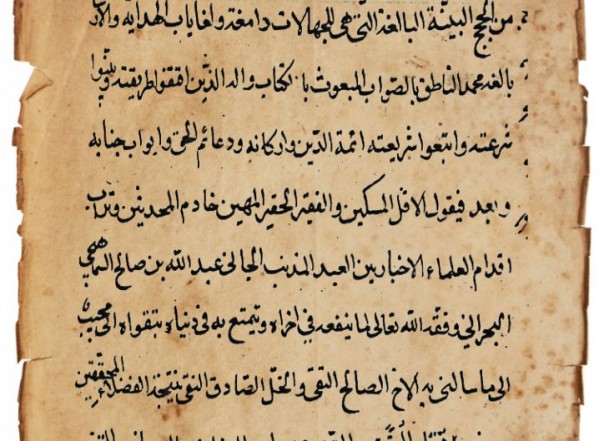 من الحجج البينة البالغة التى هى للجهالات دامغة ولغايات الهداية والار
بالغه محمد الناطق بالصواب المبعوث بالكتاب واله الذين اقتفوا طريقته وبينوا
شرعته واتبعوا شريعته ائمة الدين واركانه ودعائم الحق وابواب جنابه
وبعد فيقول الاقل المسكين والفقير الحقير المهين خادم المحدثين وتراب
اقدام العلماء الاخباريين العبد المذنب الجانى عبد الله بن صالح السماهيجي
البحراني وفقه الله تعالى لما ينفعه في اخراه ويتمتع به في دنياه بتقواه انى مجيب
الى ما سالنى به الاخ الصالح التقى والخل الصادق النقى نتيجة الفضلاء المحققين